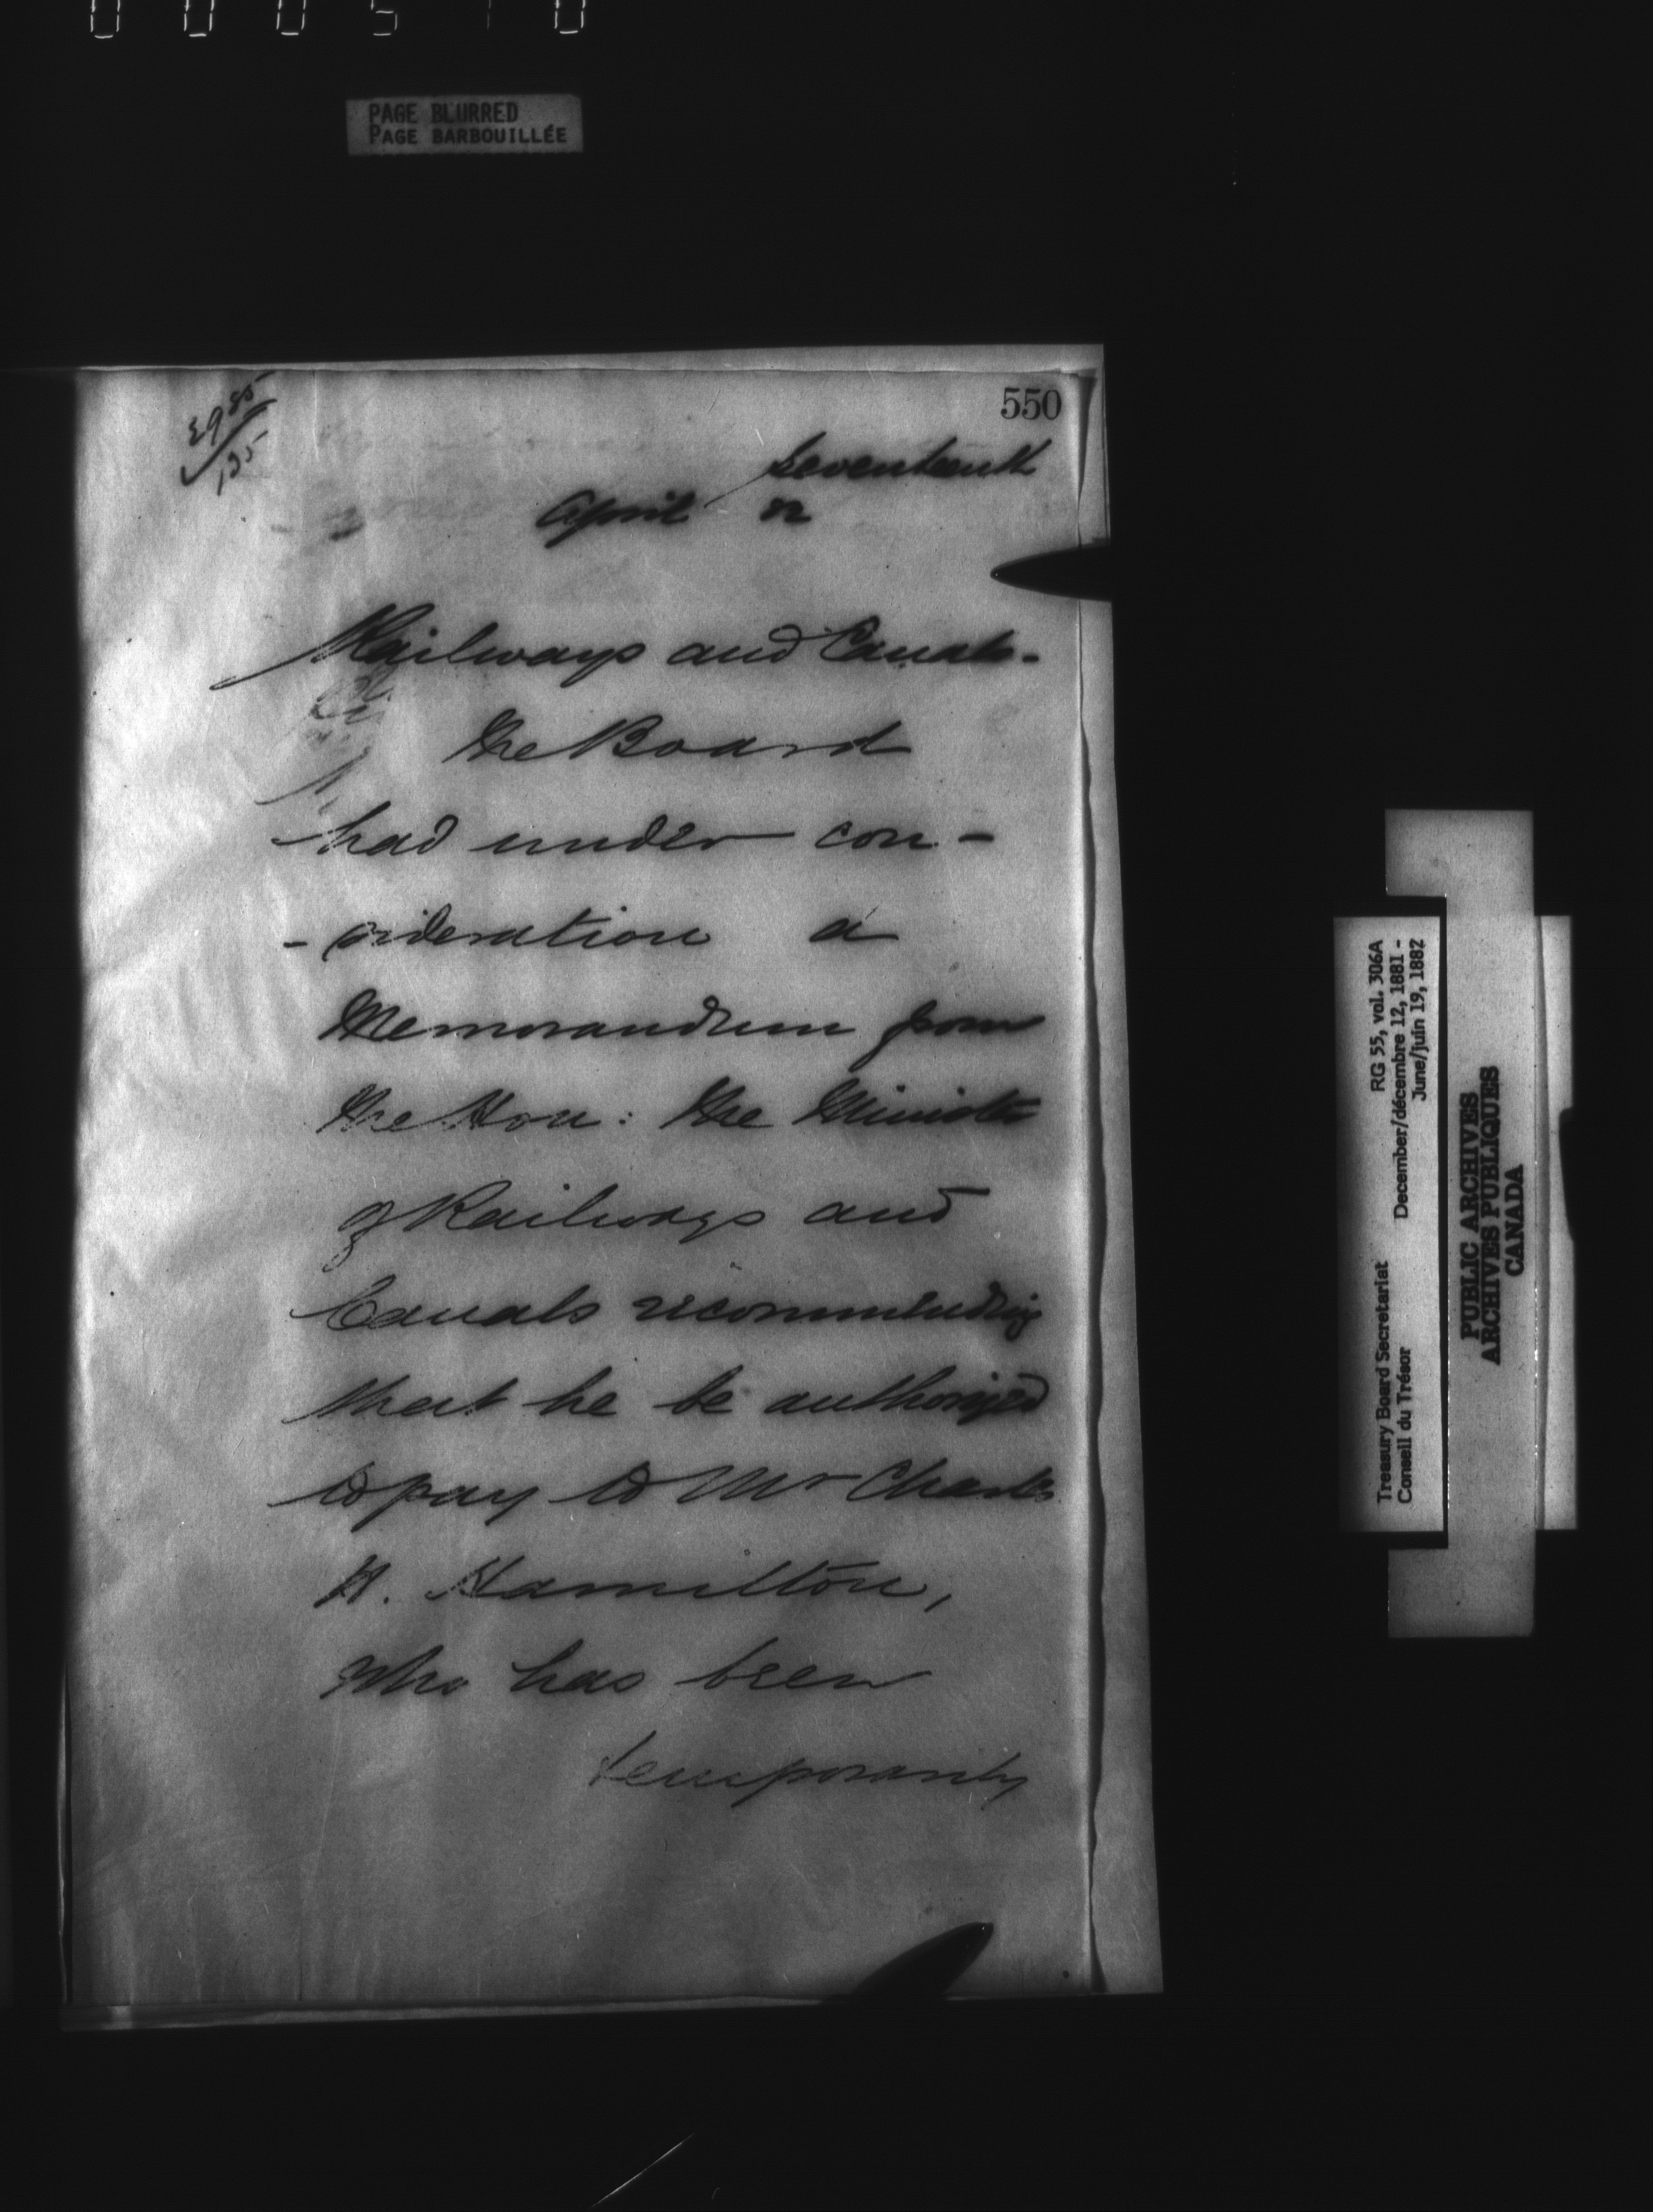 PAGE BLURRED
PAGE BARBOUILLÉE
550
seventeenth
April 82
Railways and Canals.
The Board
had under con-
-sideration a
Memorandum from
the Hon: the Minister
of Railways and
Canals recommending
that he be authorized
to pay to Mr Charles
H. Hamilton,
who has been
temporarily
Treasury Board Secretariat RG 55, vol. 306A
Conseil du Trésor December/décembre 12, 1881 -
June/juin 19, 1882
PUBLIC ARCHIVES
ARCHIVES PUBLIQUES
CANADA